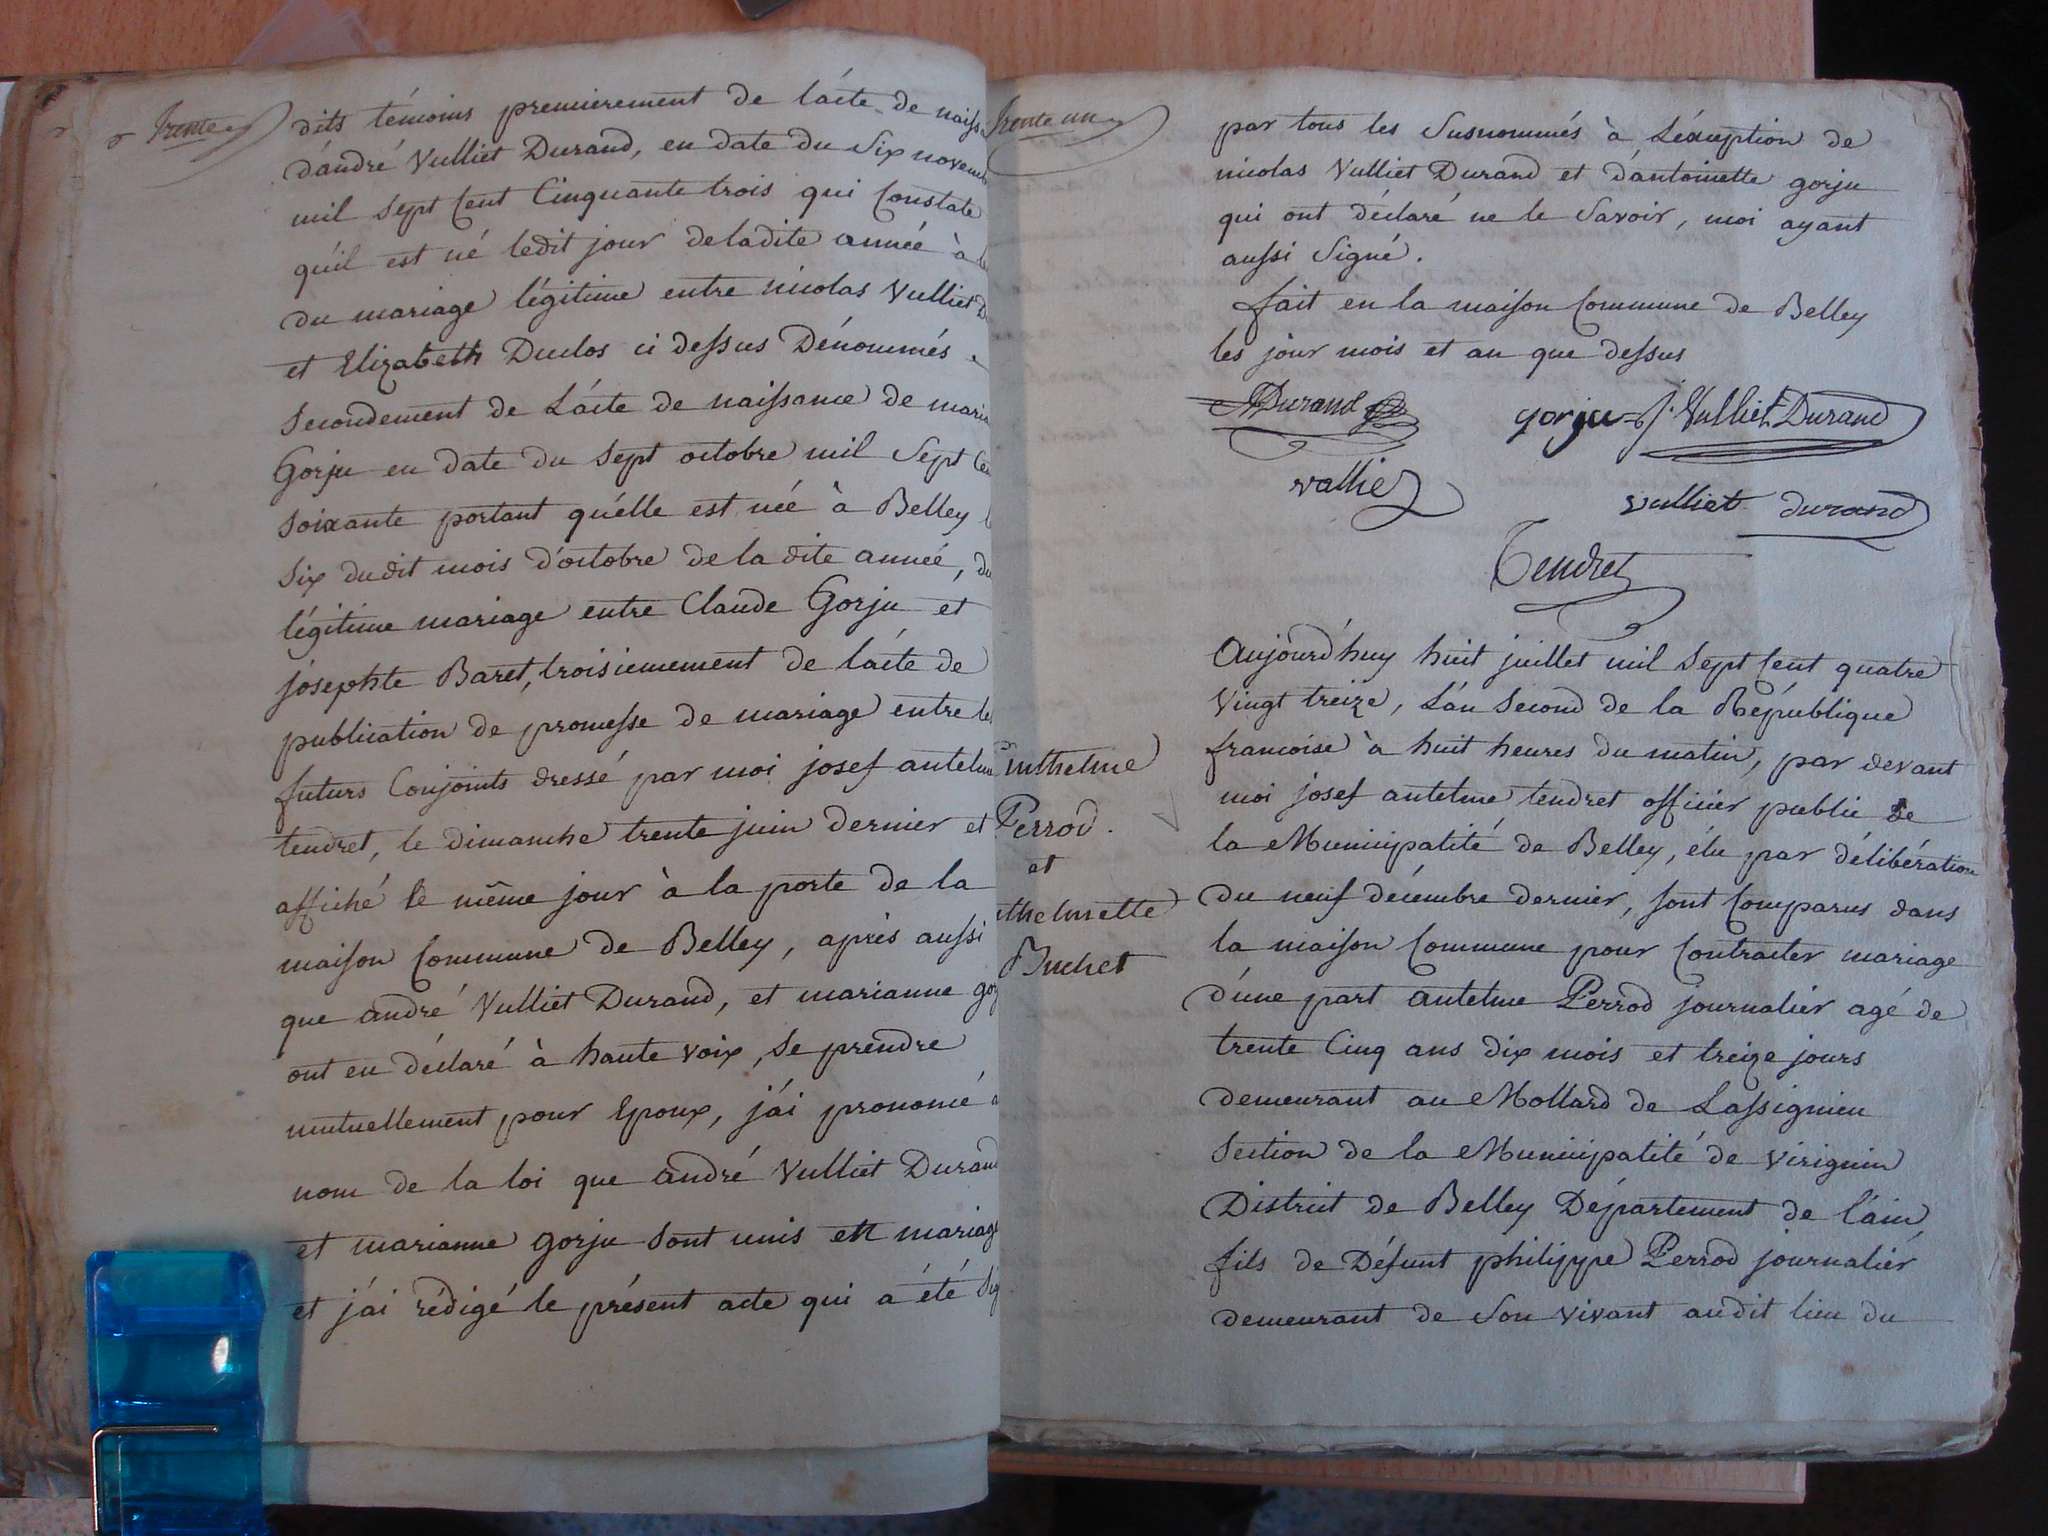 trente
dits témoins premierement de l'acte de naiss
d'andré Vulliet Durand, en date du Six novem
mil Sept Cent Cinquante trois qui Constate
qu'il est né ledit jour deladite année à
du mariage légitime entre nicolas Vulliet D
et Elizabeth Duclos ci dessus Dénommés
Secondement de L'acte de naissance de maria
Gorju en date du Sept octobre mil Sept Ce
Soixante portant qu'elle est née à Belley
Six dudit mois d'octobre de la dite année, du
légitime mariage entre Claude Gorju et
josephte Baret, troisiemement de l'acte de
publication de promesse de mariage entre le
futurs Conjoints dressé par moi josef antelme
tendret, le dimanche trente juin dernier et
affiché le même jour à la porte de la
maison Commune de Belley, après aussi
que andré Vulliet Durand, et marianne gor
ont eu déclaré à haute voix, Se prendre
mutuellement pour Epoux, j'ai prononcé
nom de la loi que andré Vulliet Durand
et marianne gorju Sont unis en mariage
et j'ai rédigé le présent acte qui a été Sig
trente un
par tous les Susnommés à L'exception de
nicolas Vulliet Durand et d'antoinette gorju
qui ont déclaré ne le Savoir, moi ayant
aussi Signé.
fait en la maison Commune de Belley
les jour mois et an que dessus
Durand gorju j. Vulliet Durand
vallie vulliet durand
Tendret
nthelme
Perrod.
et
thelmette
Buchet
Aujourd'huy huit juillet mil Sept Cent quatre
Vingt treize, L'an Second de la République
francoise à huit heures du matin, par devant
moi josef antelme tendret officier public de
la Municipalité de Belley, élu par délibération
du neuf décembre dernier, Sont Comparus dans
la maison Commune pour Contracter mariage
d'une part antelme Perrod journalier agé de
trente Cinq ans dix mois et treize jours
demeurant au Mollard de Lassignieu
Section de la Municipalité de Virignin
District de Belley Département de l'ain
fils de Défunt philippe Perrod journalier
demeurant de Son Vivant audit lieu du